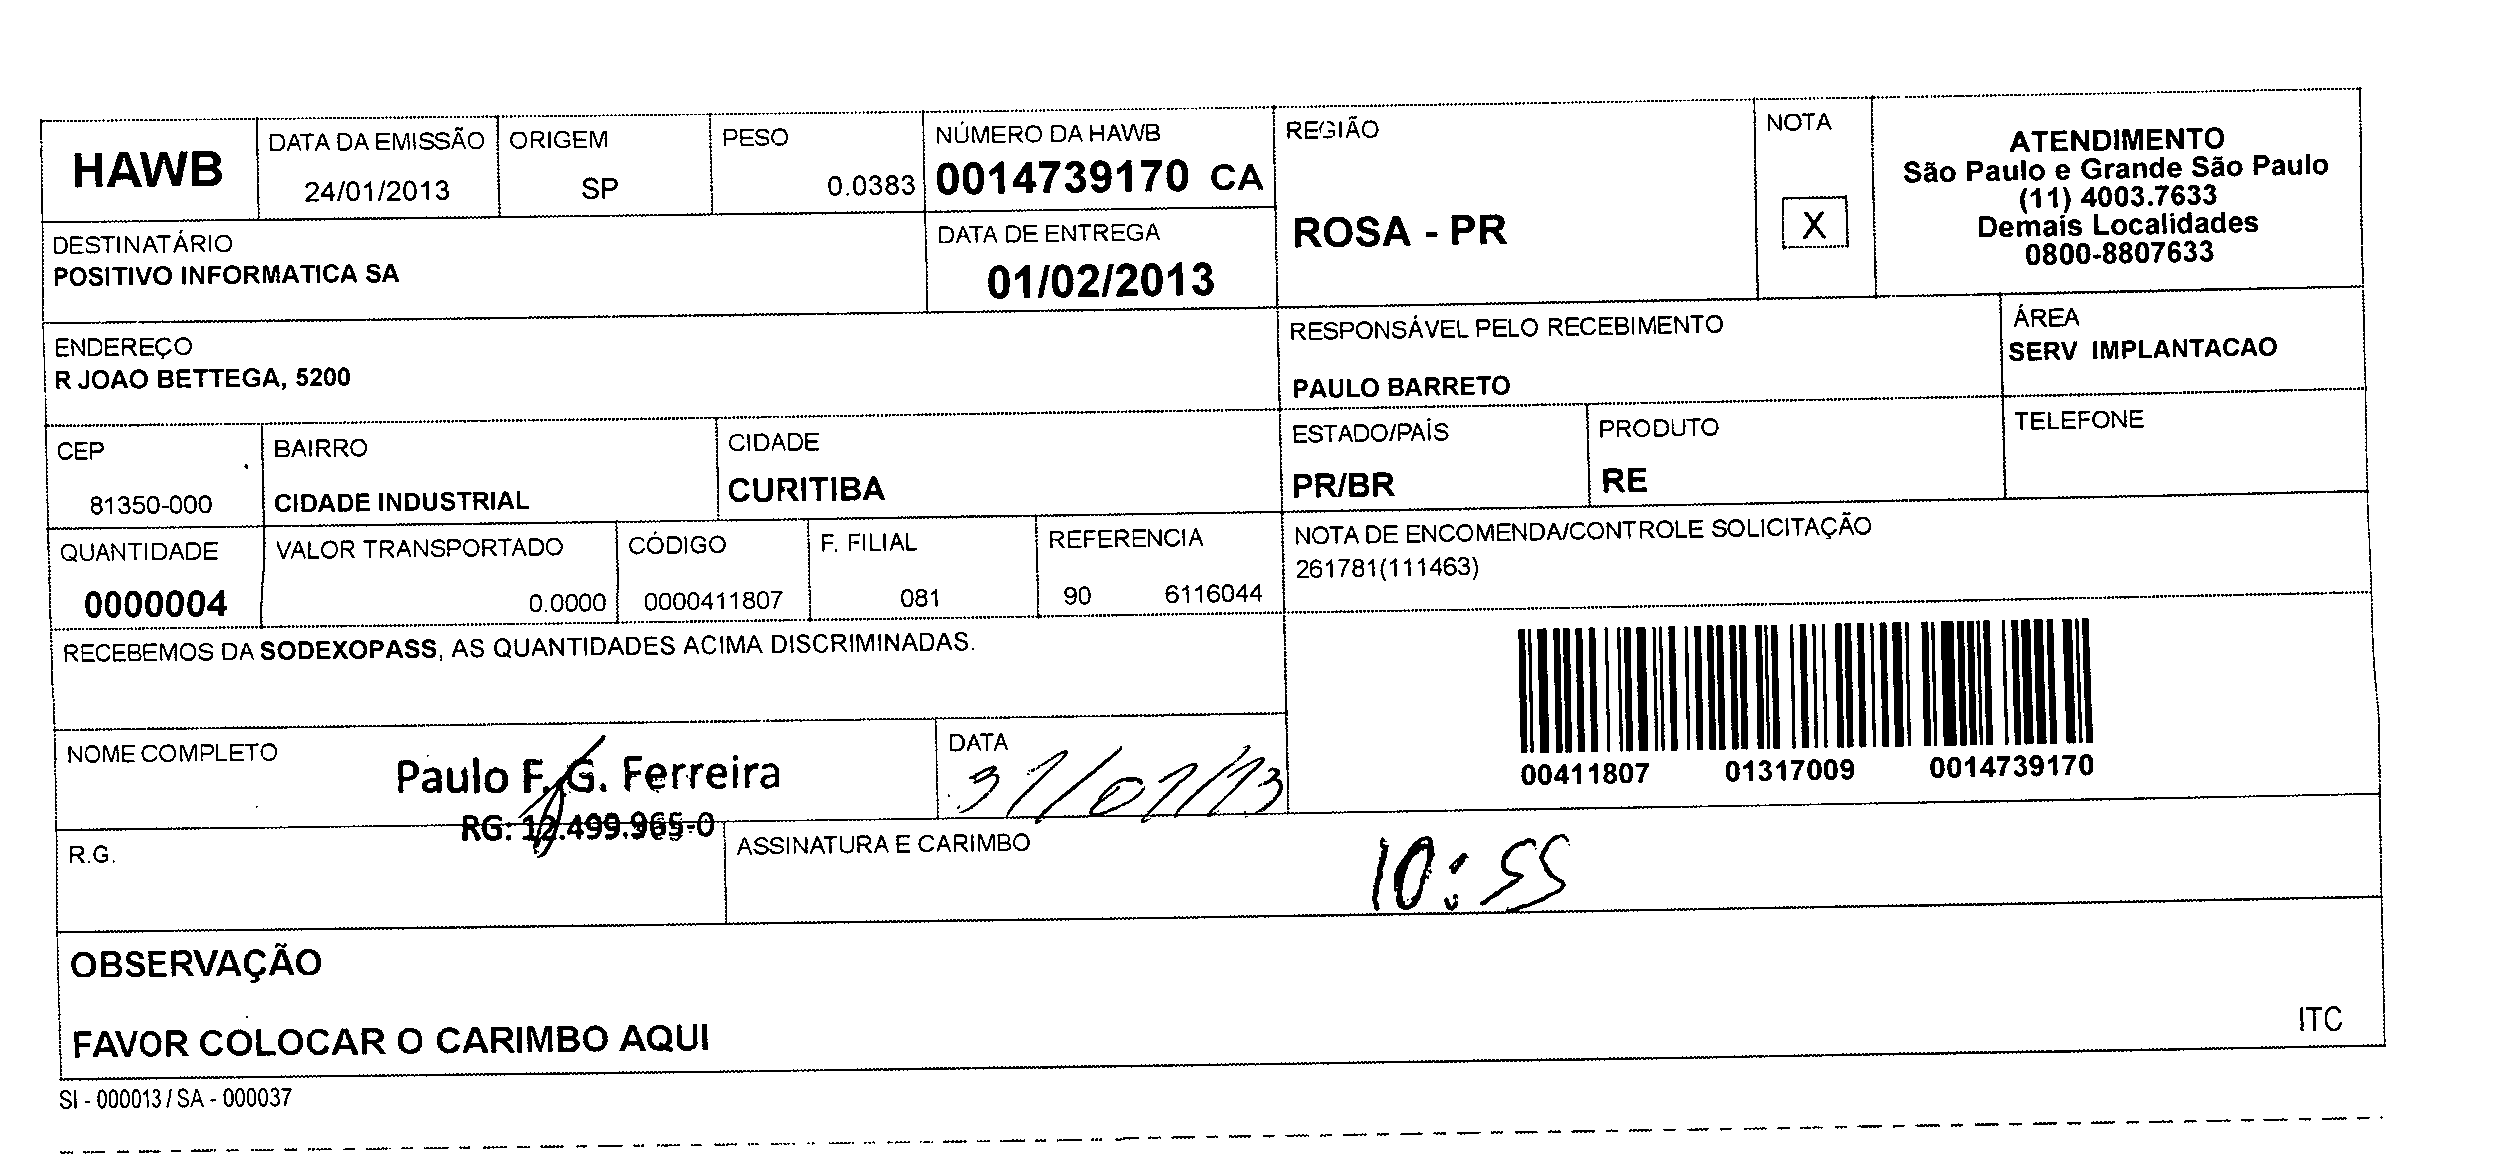 HAWB
DATA DA EMISSÃO
24/01/2013
ORIGEM
SP
PESO
0.0383
NÚMERO DA HAWB
0014739170 CA
REGIÃO
ROSA - PR
NOTA
X
ATENDIMENTO
São Paulo e Grande São Paulo
(11) 4003.7633
Demais Localidades
0800-8807633
DESTINATÁRIO
POSITIVO INFORMATICA SA
DATA DE ENTREGA
01/02/2013
ENDEREÇO
R JOAO BETTEGA, 5200
RESPONSÁVEL PELO RECEBIMENTO
PAULO BARRETO
ÁREA
SERV IMPLANTACAO
CEP
81350-000
BAIRRO
CIDADE INDUSTRIAL
CIDADE
CURITIBA
ESTADO/PAÍS
PR/BR
PRODUTO
RE
TELEFONE
QUANTIDADE
0000004
VALOR TRANSPORTADO
0.0000
CÓDIGO
0000411807
F. FILIAL
081
REFERENCIA
90 6116044
NOTA DE ENCOMENDA/CONTROLE SOLICITAÇÃO
261781(111463)
RECEBEMOS DA SODEXOPASS, AS QUANTIDADES ACIMA DISCRIMINADAS.
00411807 01317009 0014739170
NOME COMPLETO
Paulo F. G. Ferreira
RG: 12.499.965-0
DATA
31/01/13
R.G.
ASSINATURA E CARIMBO
10:55
OBSERVAÇÃO
FAVOR COLOCAR O CARIMBO AQUI
ITC
SI - 000013 / SA - 000037